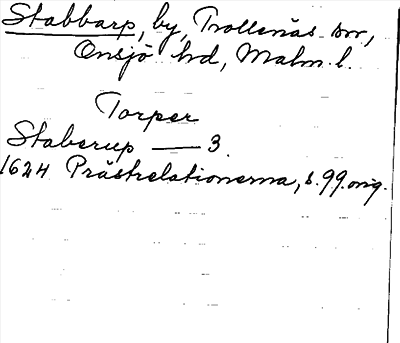 Stabbarp, by, Trollenäs sn,
Onsjö hd, Malm. l.
Torper
Staberup — 3.
1624 Prästrelationerna, s. 99. orig.